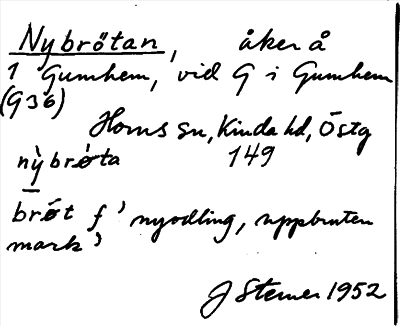 Nybrötan, åker å
1 Gumhem, vid G i Gumhem
(G36)
Horns sn, Kinda hd, Östg
nỳbrǿta 149
brǿt f 'nyodling, uppbruten
mark'
J Sterner 1952